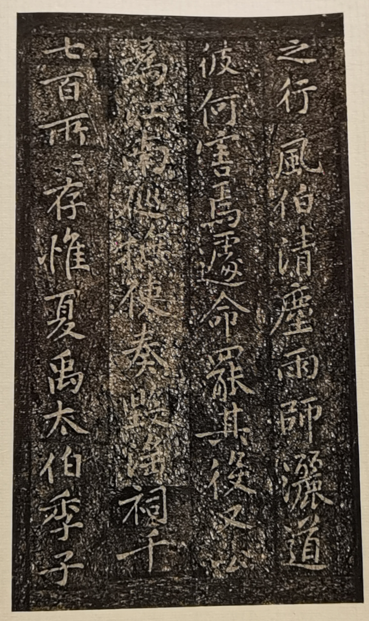 之行風伯清塵雨師灑道
彼何害焉遽命罷其役又公
為江南巡撫使奏毀淫祠千
七百所〻存惟夏禹太伯季子